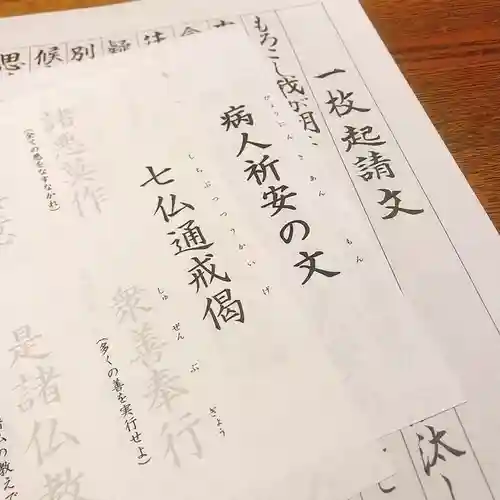 一枚起請文
もろこし我が月
思候別疑
汰し
病人祈安の文
びょうにんきあん もん
七仏通戒偈
しちぶつつうかいげ
諸悪莫作
(全ての悪をなすなかれ)
衆善奉行
しゅ ぜん ぶ ぎょう
(多くの善を実行せよ)
是諸仏教
仏の教えで